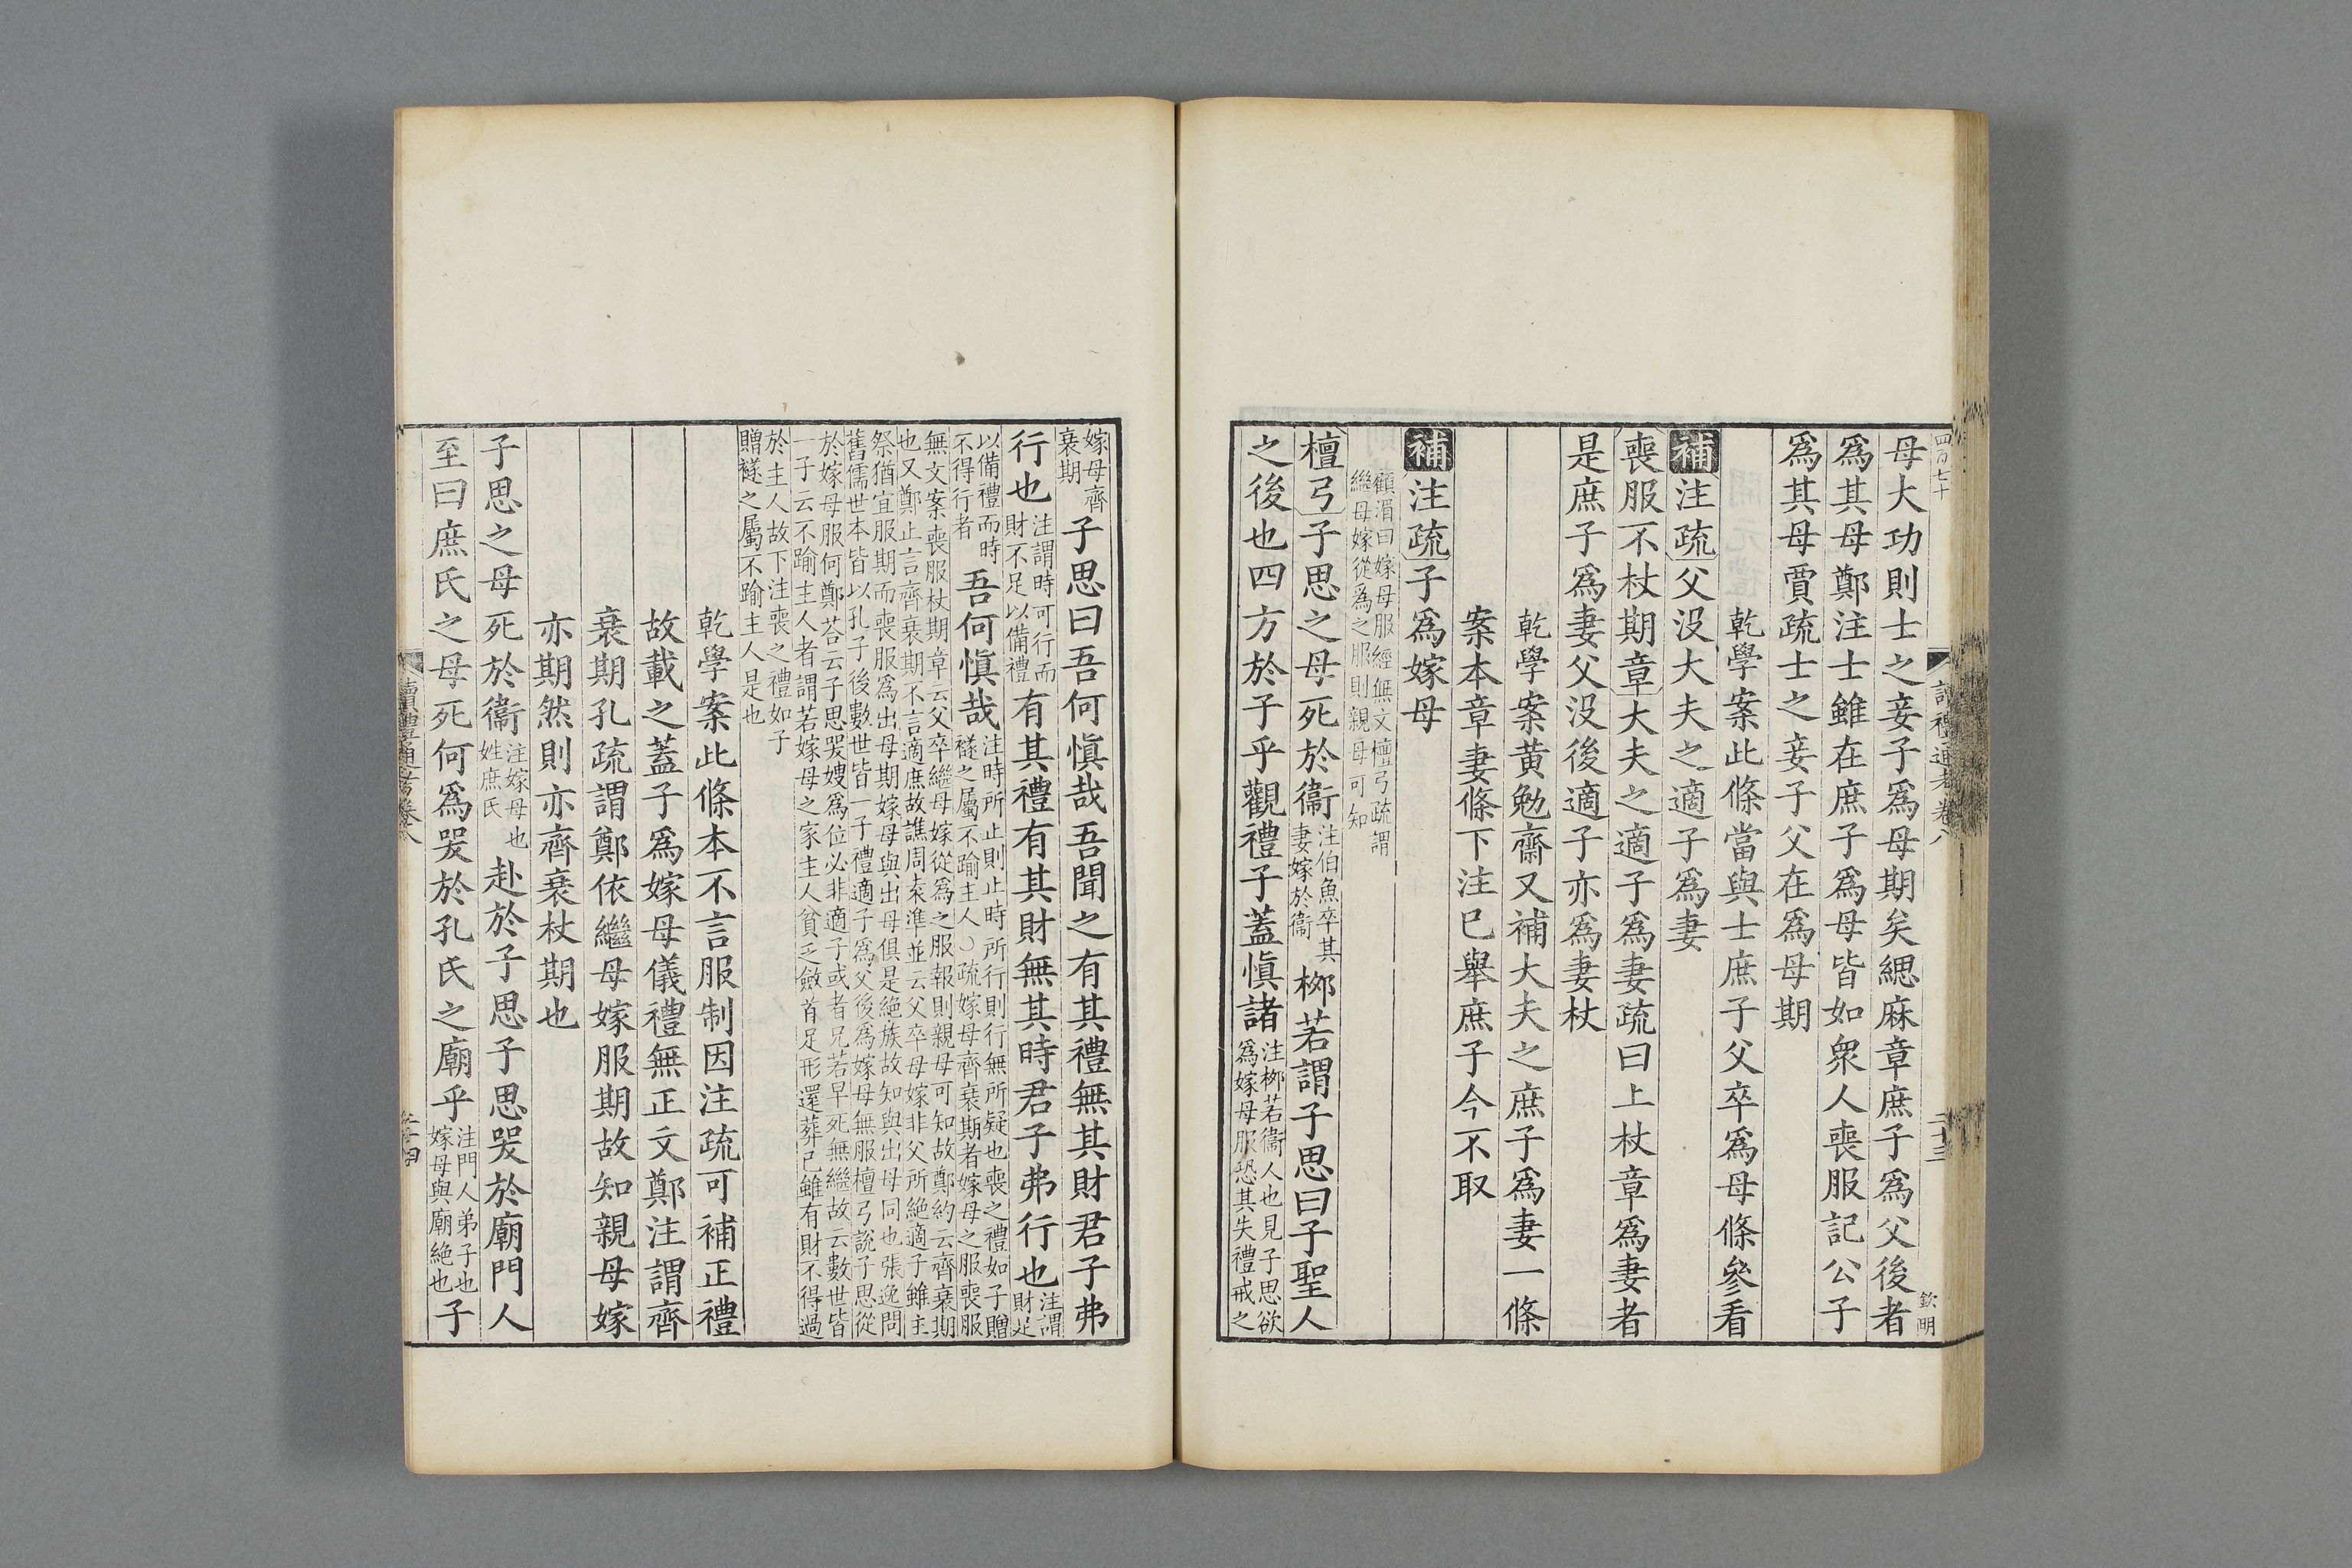 四百七十
讀禮通考卷八
二十三
欽明
母大功則士之妾子爲母期矣緦麻章庶子爲父後者
爲其母鄭注士雖在庶子爲母皆如衆人喪服記公子
爲其母賈疏士之妾子父在爲母期
乾學案此條當與士庶子父卒爲母條參看
補注疏父沒大夫之適子爲妻
喪服不杖期章大夫之適子爲妻疏曰上杖章爲妻者
是庶子爲妻父沒後適子亦爲妻杖
乾學案黃勉齋又補大夫之庶子爲妻一條
案本章妻條下注已舉庶子今不取
補注疏子爲嫁母
顧湄曰嫁母服經無文檀弓疏謂
繼母嫁從爲之服則親母可知
檀弓子思之母死於衞注伯魚卒其妻嫁於衞桺若謂子思曰子聖人
之後也四方於子乎觀禮子蓋愼諸注桺若衞人也見子思欲爲嫁母服恐其失禮戒之
嫁母齊衰期子思曰吾何愼哉吾聞之有其禮無其財君子弗
行也注謂時可行而財不足以備禮有其禮有其財無其時君子弗行也注謂財足
以備禮而時不得行者吾何愼哉注時所止則止時所行則行無所疑也喪之禮如子贈襚之屬不踰主人○疏嫁母齊衰期者嫁母之服喪服
無文案喪服杖期章云父卒繼母嫁從爲之服報則親母可知故鄭約云齊衰期
也又鄭止言齊衰期不言適庶故譙周袁準並云父卒母嫁非父所絶適子雖主
祭猶宜服期而喪服爲出母期嫁母與出母俱是絶族故知與出母同也張逸問
舊儒世本皆以孔子後數世皆一子禮適子爲父後爲嫁母無服檀弓說子思從
於嫁母服何鄭荅云子思哭嫂爲位必非適子或者兄若早死無繼故云數世皆
一子云不踰主人者謂若嫁母之家主人貧乏斂首足形還葬已雖有財不得過
於主人故下注喪之禮如子
贈襚之屬不踰主人是也
乾學案此條本不言服制因注疏可補正禮
故載之蓋子爲嫁母儀禮無正文鄭注謂齊
衰期孔疏謂鄭依繼母嫁服期故知親母嫁
亦期然則亦齊衰杖期也
子思之母死於衞注嫁母也姓庶氏赴於子思子思哭於廟門人
至曰庶氏之母死何爲哭於孔氏之廟乎注門人弟子也嫁母與廟絶也子
讀禮通考卷八
二十四